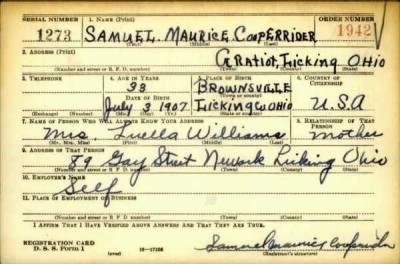 SERIAL NUMBER 1. NAME (Print) ORDER NUMBER
1273 SAMUEL MAURICE COOPERRIDER 1942
(First) (Middle) (Last)
2. ADDRESS (Print)
GRATIOT, LICKING OHIO
(Number and street or R. F. D. number) (Town) (County) (State)
3. TELEPHONE 4. AGE IN YEARS 5. PLACE OF BIRTH 6. COUNTRY OF CITIZENSHIP
33 BROWNSVILLE
DATE OF BIRTH (Town or county)
July 3 1907 LICKING CO OHIO U.S.A
(Exchange) (Number) (Mo.) (Day) (Yr.) (State or country)
7. NAME OF PERSON WHO WILL ALWAYS KNOW YOUR ADDRESS 8. RELATIONSHIP OF THAT PERSON
Mrs. Luella Williams Mother
(Mr., Mrs., Miss) (First) (Middle) (Last)
9. ADDRESS OF THAT PERSON
89 Gay Street Newark Licking Ohio
(Number and street or R. F. D. number) (Town) (County) (State)
10. EMPLOYER'S NAME
Self
11. PLACE OF EMPLOYMENT OR BUSINESS
(Number and street or R. F. D. number) (Town) (County) (State)
I AFFIRM THAT I HAVE VERIFIED ABOVE ANSWERS AND THAT THEY ARE TRUE.
REGISTRATION CARD
D. S. S. Form 1 (over) Samuel Maurice Cooperrider
(Registrant's signature)